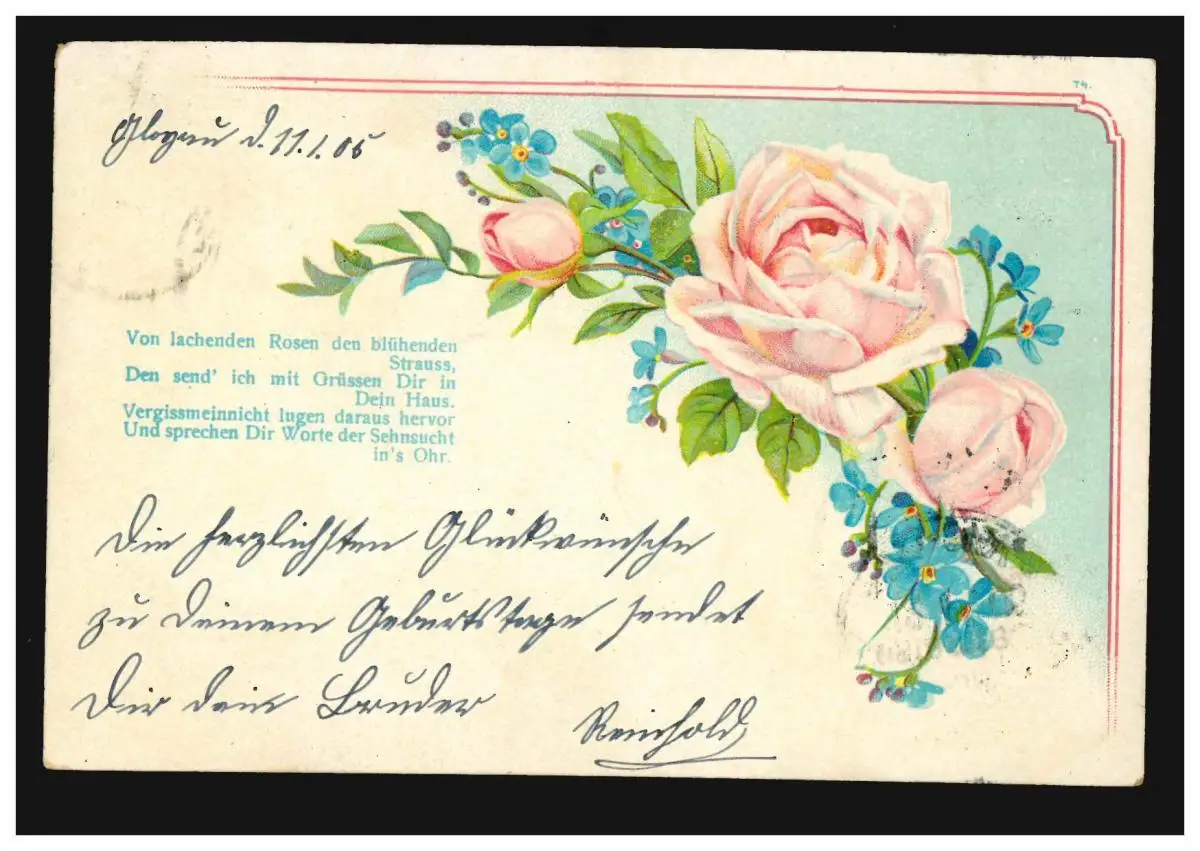 74.
Glogau d. 11.1.06
Von lachenden Rosen den blühenden
Strauss,
Den send' ich mit Grüssen Dir in
Dein Haus.
Vergissmeinnicht lugen daraus hervor
Und sprechen Dir Worte der Sehnsucht
in's Ohr.
Die herzlichsten Glückwünsche
zu deinem Geburtstage sendet
Dir dein Bruder
Reinhold